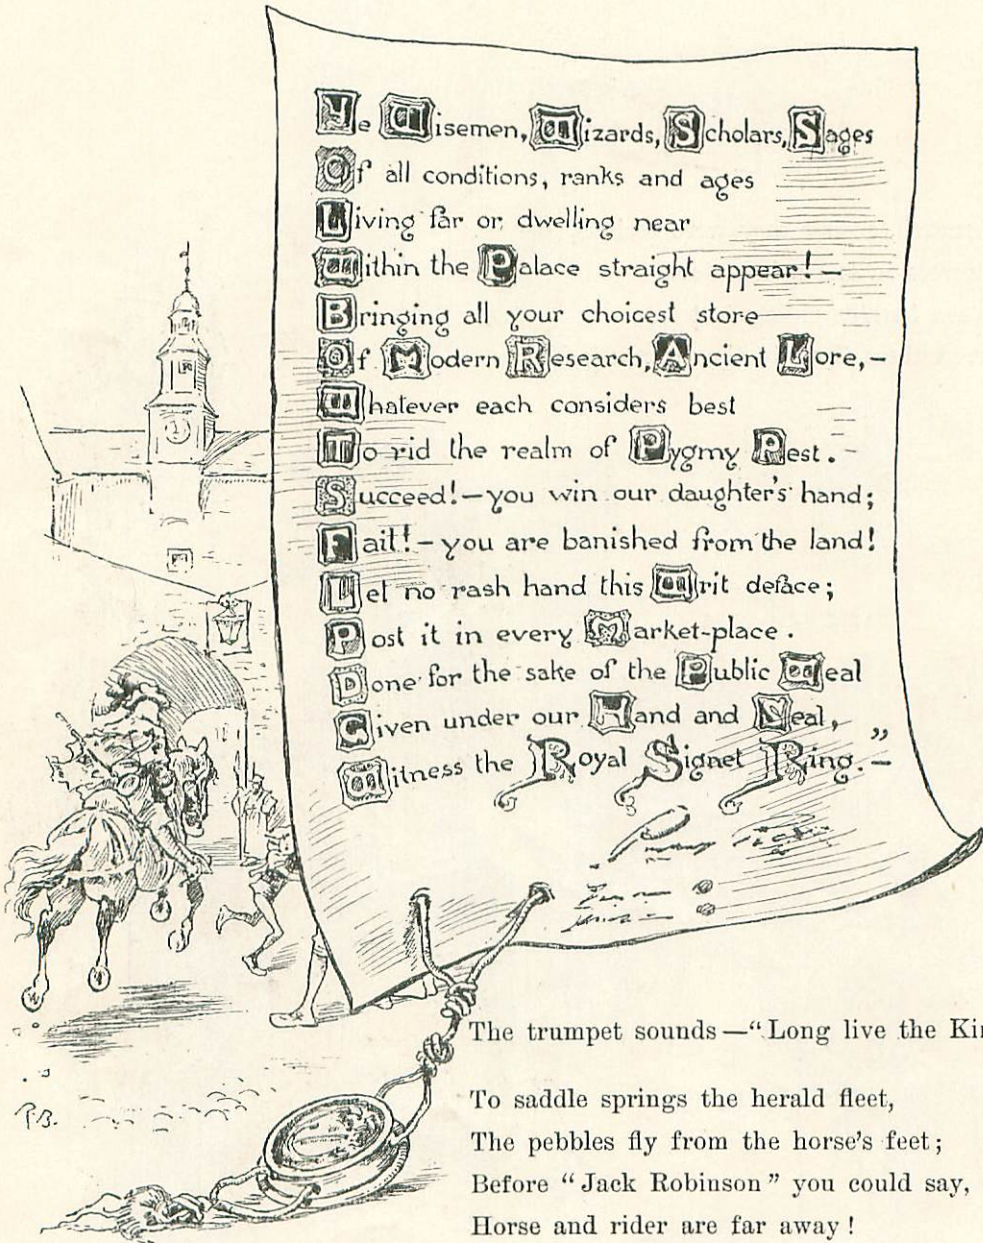 Ye Wisemen, Wizards, Scholars, Sages
Of all conditions, ranks and ages
Living far or dwelling near
Within the Palace straight appear! —
Bringing all your choicest store
Of Modern Research, Ancient Lore, —
Whatever each considers best
To rid the realm of Pygmy Pest. —
Succeed! — you win our daughter's hand;
Fail! — you are banished from the land!
Let no rash hand this Writ deface;
Post it in every Market-place.
Done for the sake of the Public Weal
Given under our Hand and Seal,
Witness the Royal Signet Ring." —
The trumpet sounds — "Long live the
To saddle springs the herald fleet,
The pebbles fly from the horse's feet;
Before "Jack Robinson" you could say,
Horse and rider are far away!
P.B.